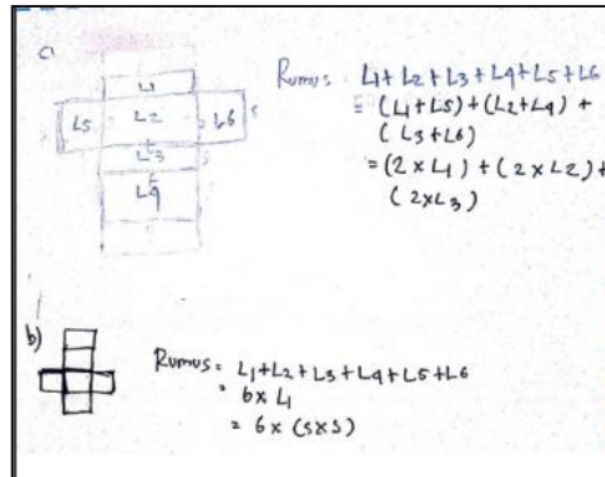 a
L1
L5 L2 L6
L3
L4
Rumus: L1+L2+L3+L4+L5+L6
= (L1+L5)+(L2+L4)+
(L3+L6)
= (2×L1)+(2×L2)+
(2×L3)
b)
Rumus = L1+L2+L3+L4+L5+L6
= 6×L1
= 6×(s×s)